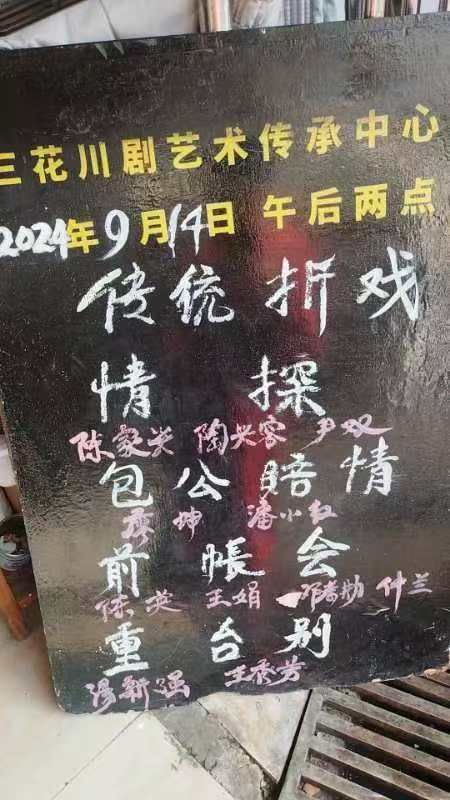 三花川剧艺术传承中心
2024年9月14日 午后两点
传统折戏
情探
陈家兴 陶兴容 尹双
包公赔情
廖坤 潘小红
前帐会
陈英 王娟 仲兰
重台别
汤新强 王秀芳